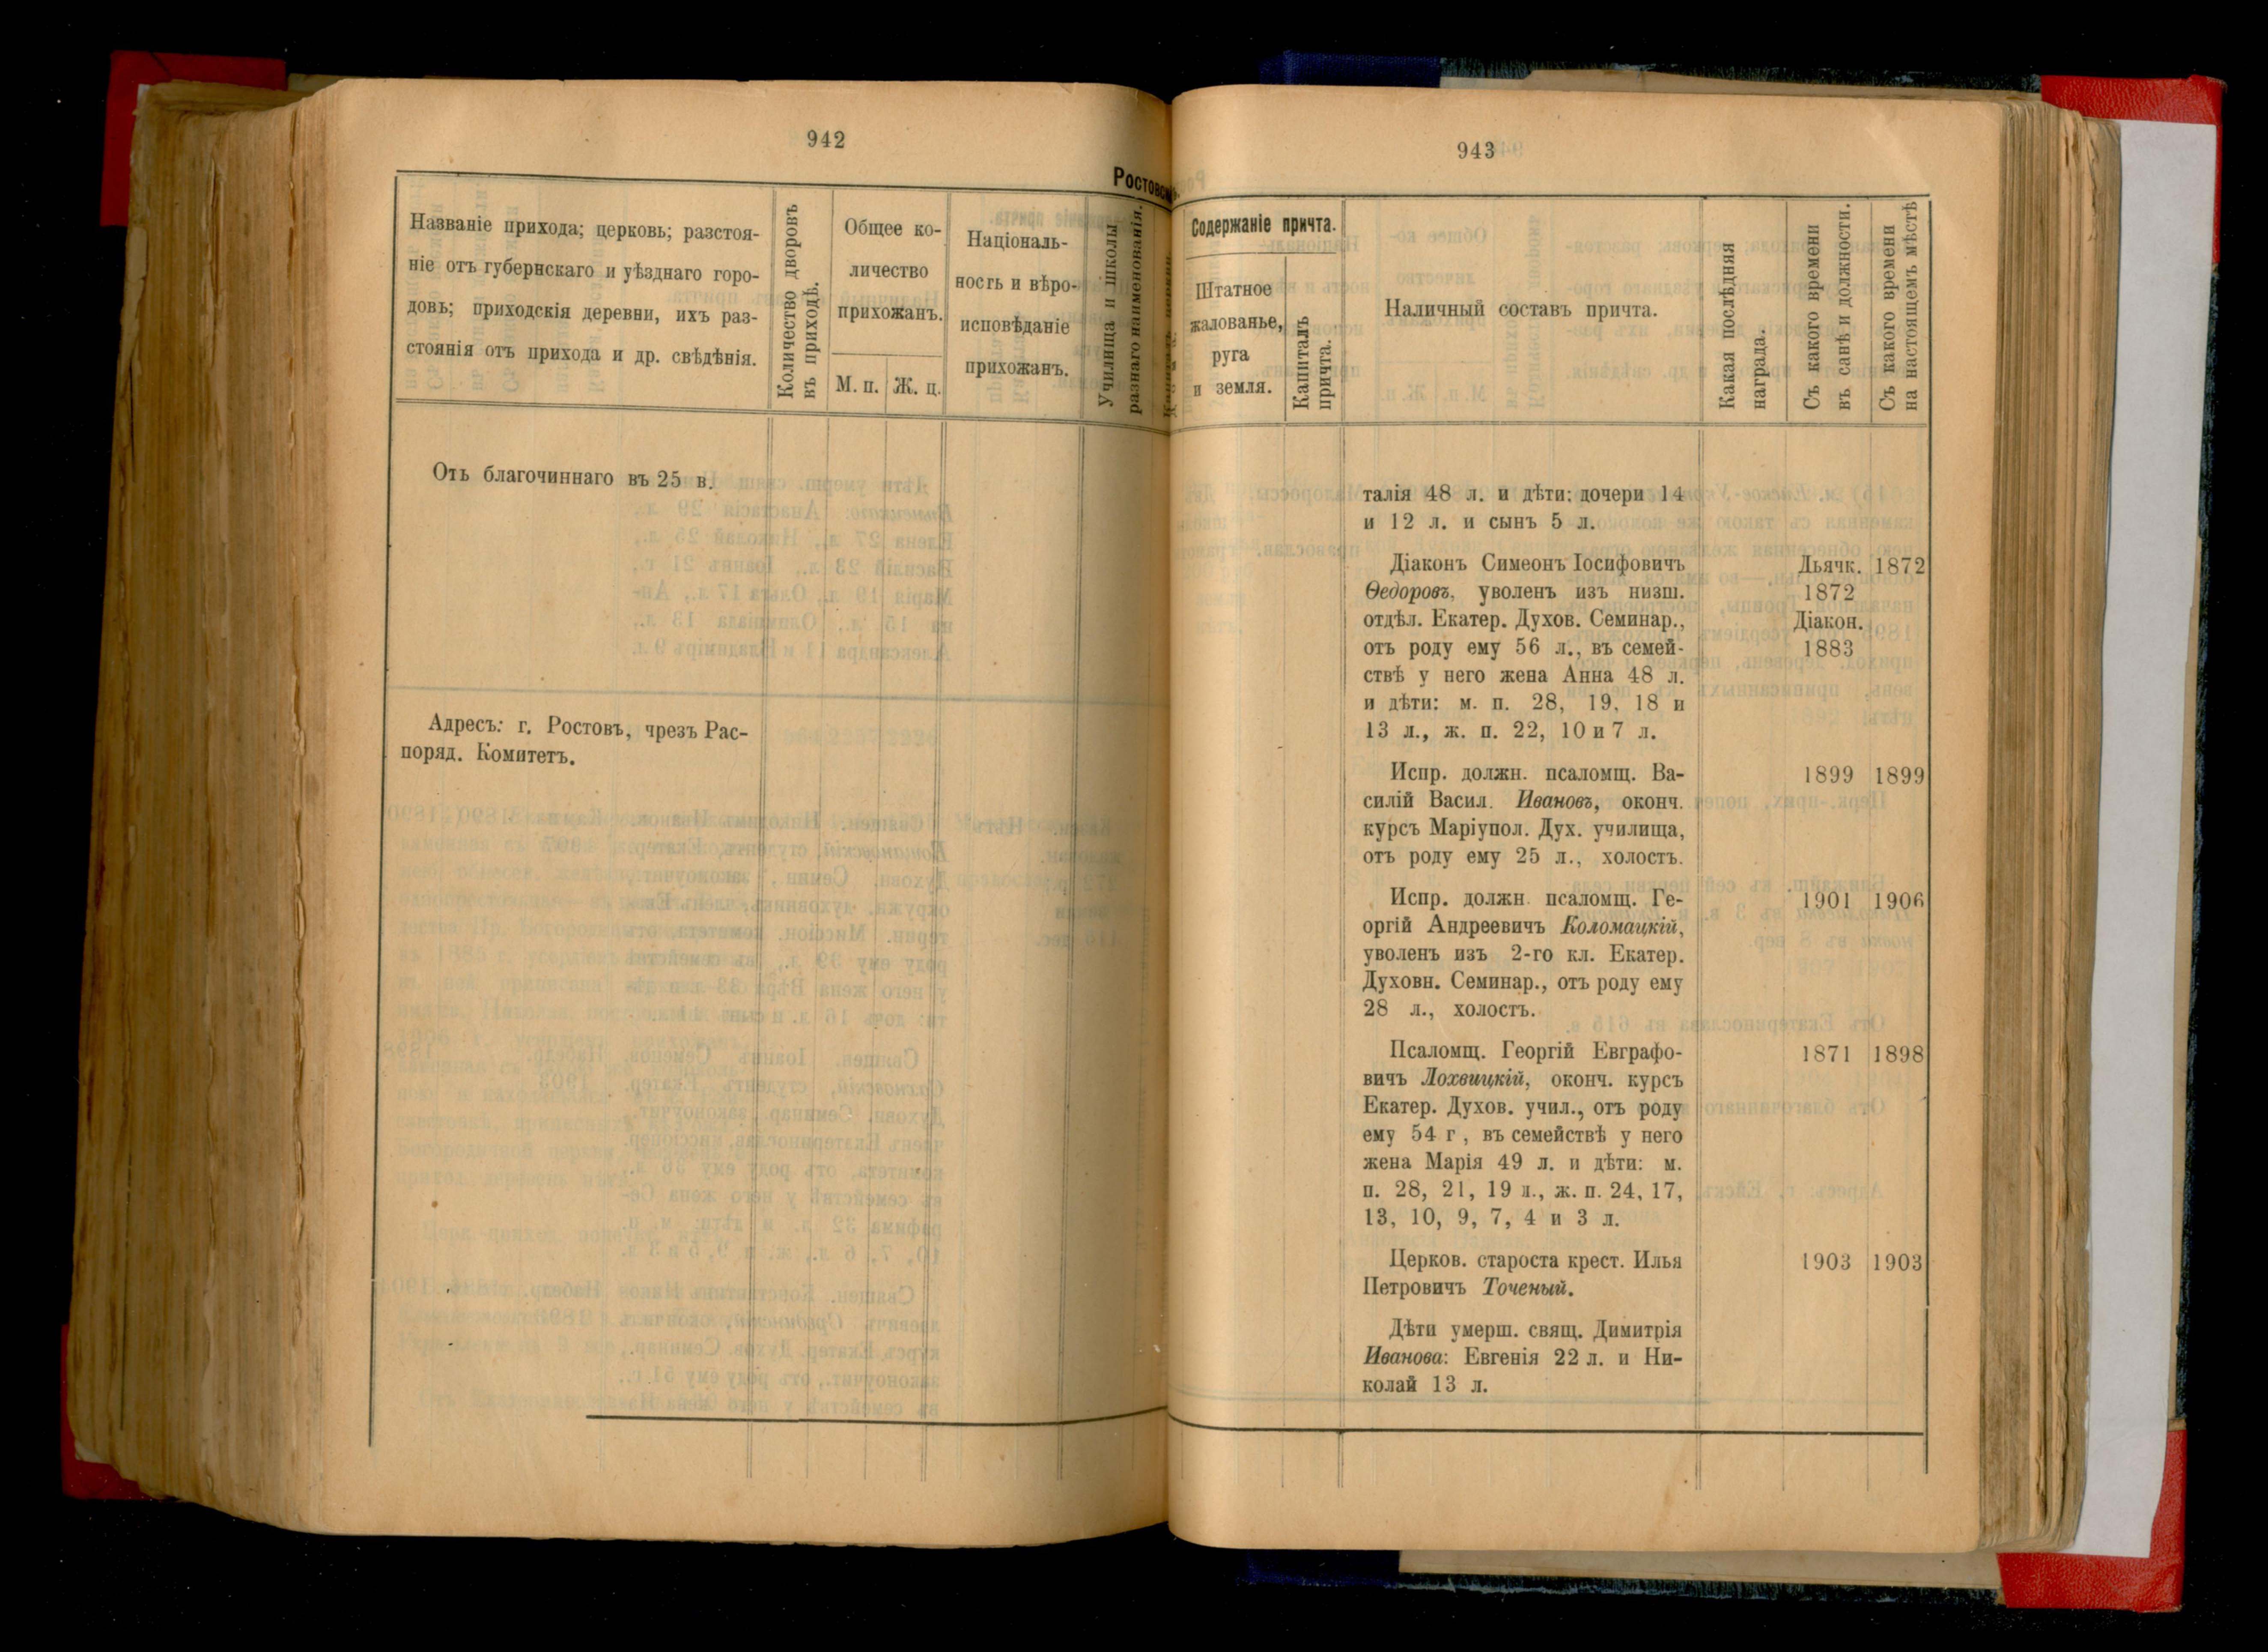 942
Ростовскій.
Названіе прихода; церковь; разстоя-
ніе отъ губернскаго и уѣзднаго горо-
довъ; приходскія деревни, ихъ раз-
стоянія отъ прихода и др. свѣдѣнія.
Количество дворовъ
въ приходѣ.
Общее ко-
личество
прихожанъ.
М. п.
Ж. п.
Націоналъ-
ность и вѣро-
исповѣданіе
прихожанъ.
Училища и школы
разнаго наименованія.
Отъ благочиннаго въ 25 в.
Адресъ: г. Ростовъ, чрезъ Рас-
поряд. Комитетъ.
943
Содержаніе причта.
Штатное
жалованье,
руга
и земля.
Капиталъ
причта.
Наличный составъ причта.
Какая послѣдняя
награда.
Съ какого времени
въ санѣ и должности.
Съ какого времени
на настоящемъ мѣстѣ
талія 48 л. и дѣти: дочери 14
и 12 л. и сынъ 5 л.
Діаконъ Симеонъ Іосифовичъ Дьячк. 1872
Ѳедоровъ, уволенъ изъ низш. 1872
отдѣл. Екатер. Духов. Семинар., Діакон.
отъ роду ему 56 л., въ семей- 1883
ствѣ у него жена Анна 48 л.
и дѣти: м. п. 28, 19, 18 и
13 л., ж. п. 22, 10 и 7 л.
Испр. должн. псаломщ. Ва- 1899 1899
силій Васил. Ивановъ, оконч.
курсъ Маріупол. Дух. училища,
отъ роду ему 25 л., холостъ.
Испр. должн. псаломщ. Ге- 1901 1906
оргій Андреевичъ Коломацкій,
уволенъ изъ 2-го кл. Екатер.
Духовн. Семинар., отъ роду ему
28 л., холостъ.
Псаломщ. Георгій Евграфо- 1871 1898
вичъ Лохвицкій, оконч. курсъ
Екатер. Духов. учил., отъ роду
ему 54 г, въ семействѣ у него
жена Марія 49 л. и дѣти: м.
п. 28, 21, 19 л., ж. п. 24, 17,
13, 10, 9, 7, 4 и 3 л.
Церков. староста крест. Илья 1903 1903
Петровичъ Точеный.
Дѣти умерш. свящ. Димитрія
Иванова: Евгенія 22 л. и Ни-
колай 13 л.